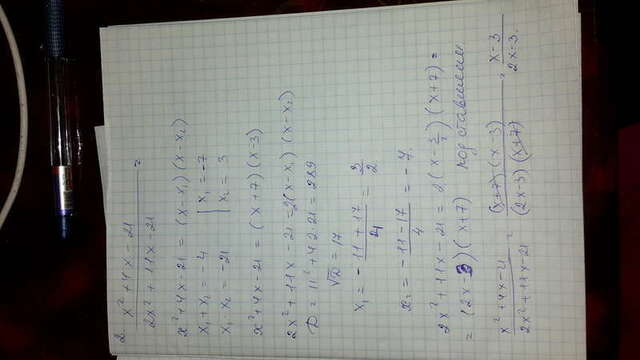 2. x² + 4x - 21 / 2x² + 11x - 21 =
x² + 4x - 21 = (x - x₁)(x - x₂)
x₁ + x₂ = -4 | x₁ = -7
x₁ x₂ = -21 | x₂ = 3
x² + 4x - 21 = (x + 7)(x - 3)
2x² + 11x - 21 = 2(x - x₁)(x - x₂)
D = 11² + 4·2·21 = 289
√D = 17
x₁ = -11 + 17 / 4 = 3/2
x₂ = -11 - 17 / 4 = -7.
2x² + 11x - 21 = 2(x - 3/2)(x + 7) =
= (2x - 3)(x + 7) подставляем
x² + 4x - 21 / 2x² + 11x - 21 = (x+7)(x - 3) / (2x - 3)(x+7) = x - 3 / 2x - 3.